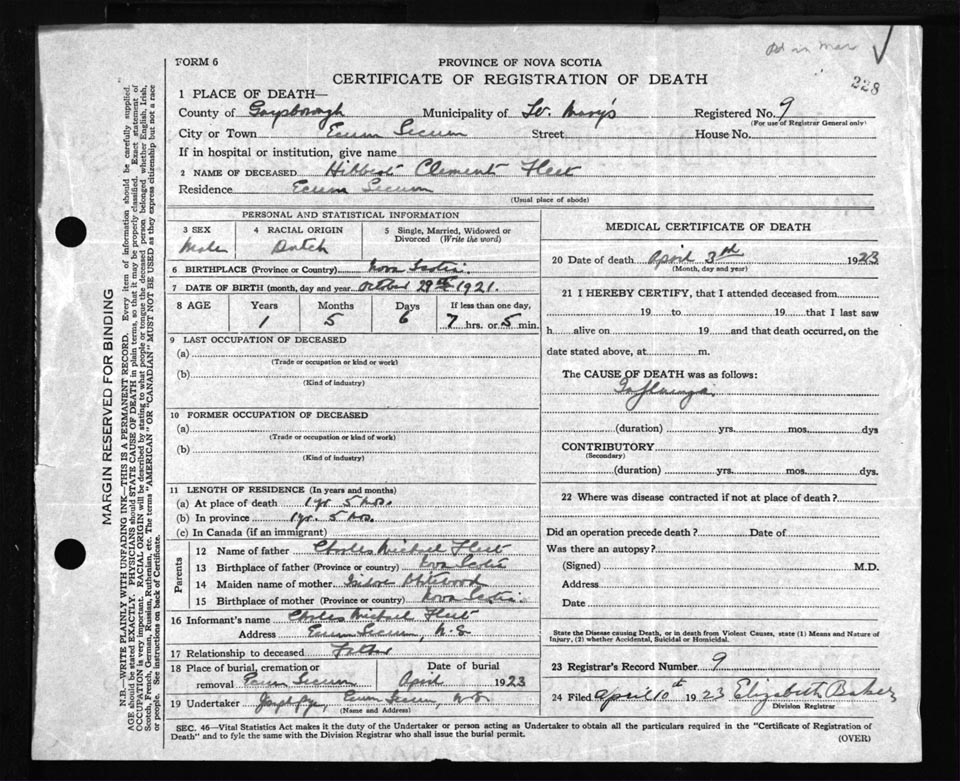 228
FORM 6
PROVINCE OF NOVA SCOTIA
CERTIFICATE OF REGISTRATION OF DEATH
1 PLACE OF DEATH—
County of Guysborough Municipality of St. Mary's Registered No. 9
(For use of Registrar General only)
City or Town Ecum Secum Street House No.
If in hospital or institution, give name
2 NAME OF DECEASED Hibbert Clement Fleet
Residence Ecum Secum
(Usual place of abode)
PERSONAL AND STATISTICAL INFORMATION
3 SEX 4 RACIAL ORIGIN 5 Single, Married, Widowed or
Divorced (Write the word)
Male Dutch
6 BIRTHPLACE (Province or Country) Nova Scotia
7 DATE OF BIRTH (month, day and year October 29th 1921.
8 AGE Years Months Days If less than one day,
1 5 6 7 hrs. or 5 min.
9 LAST OCCUPATION OF DECEASED
(a)
(Trade or occupation or kind or work)
(b)
(Kind of industry)
10 FORMER OCCUPATION OF DECEASED
(a)
(Trade or occupation or kind of work)
(b)
(Kind of industry)
11 LENGTH OF RESIDENCE (In years and months)
(a) At place of death 1 yr 5 mos.
(b) In province 1 yr. 5 mos.
(c) In Canada (if an immigrant)
Parents
12 Name of father Charles Michael Fleet
13 Birthplace of father (Province or country) Nova Scotia
14 Maiden name of mother
15 Birthplace of mother (Province or country) Nova Scotia
16 Informant's name Charles Michael Fleet
Address Ecum Secum, N.S
17 Relationship to deceased Father
18 Place of burial, cremation or Date of burial
removal Ecum Secum April 1923
19 Undertaker Ecum Secum, N.S
(Name and Address)
MEDICAL CERTIFICATE OF DEATH
20 Date of death April 3rd 1923
(Month, day and year)
21 I HEREBY CERTIFY, that I attended deceased from
19 to 19 that I last saw
h alive on 19 and that death occurred, on the
date stated above, at m.
The CAUSE OF DEATH was as follows:
Influenza
(duration) yrs. mos. dys
CONTRIBUTORY
(Secondary)
(duration) yrs. mos. dys.
22 Where was disease contracted if not at place of death?
Did an operation precede death? Date of
Was there an autopsy?
(Signed) M.D.
Address
Date
State the Disease causing Death, or in death from Violent Causes, state (1) Means and Nature of
Injury, (2) whether Accidental, Suicidal or Homicidal.
23 Registrar's Record Number 9
24 Filed April 10th 1923 Elizabeth Baker
Division Registrar
SEC. 46—Vital Statistics Act makes it the duty of the Undertaker or person acting as Undertaker to obtain all the particulars required in the "Certificate of Registration of
Death" and to fyle the same with the Division Registrar who shall issue the burial permit.
(OVER)
MARGIN RESERVED FOR BINDING
N.B.—WRITE PLAINLY WITH UNFADING INK—THIS IS A PERMANENT RECORD. Every item of information should be carefully supplied.
AGE should be stated EXACTLY. PHYSICIANS should STATE CAUSE OF DEATH in plain terms, so that it may be properly classified. Exact statement of
OCCUPATION is very important. RACIAL ORIGIN will be described by stating to what people or tongue the deceased person belonged whether English, Irish,
Scotch, French, German, Russian, Ruthenian, etc. The terms "AMERICAN" OR "CANADIAN" MUST NOT BE USED as they express citizenship but not a race
or people. See instructions on back of Certificate.